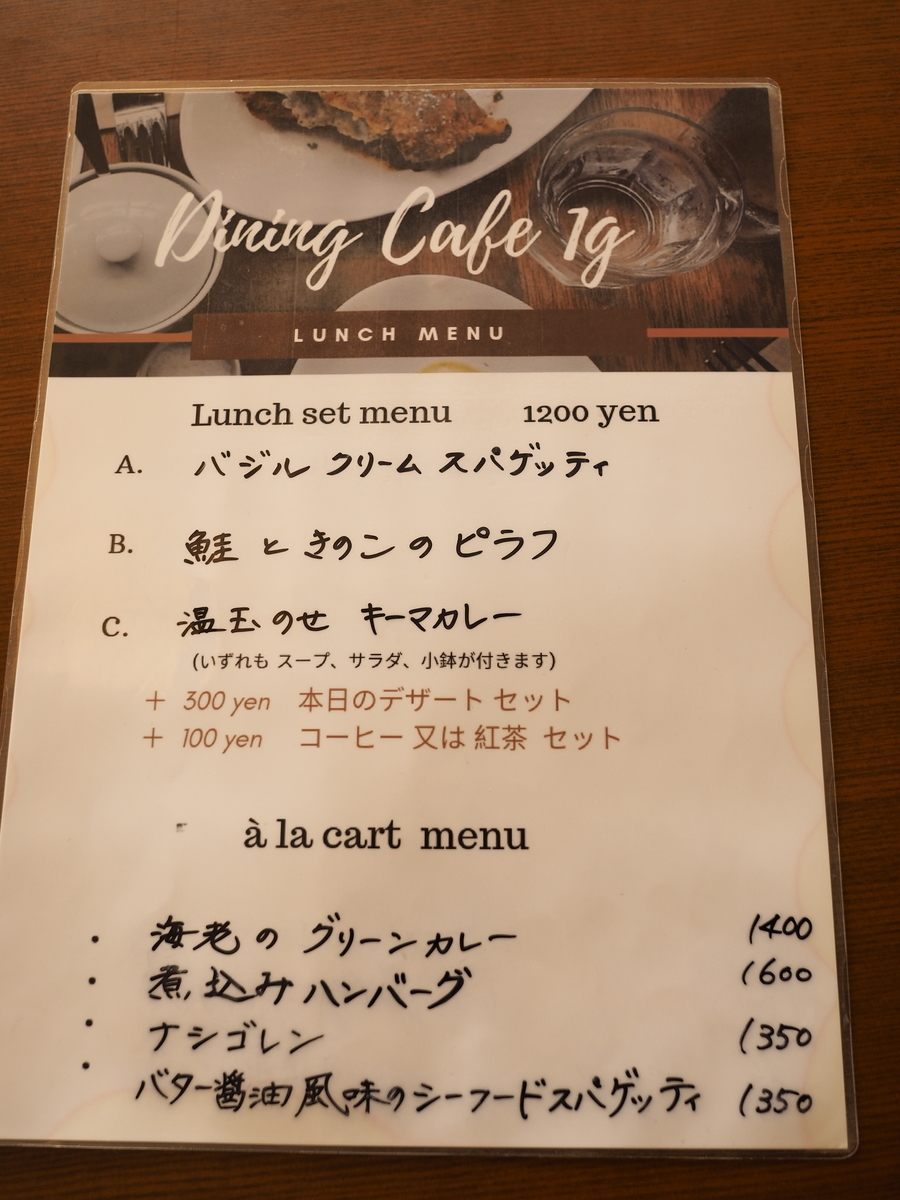 Dining Cafe 1g
LUNCH MENU
Lunch set menu 1200 yen
A. バジル クリーム スパゲッティ
B. 鮭 と きのこ の ピラフ
C. 温玉のせ キーマカレー
(いずれも スープ、サラダ、小鉢が付きます)
＋ 300 yen 本日のデザート セット
＋ 100 yen コーヒー 又は 紅茶 セット
à la cart menu
・ 海老の グリーンカレー 1400
・ 煮込み ハンバーグ 1600
・ ナシゴレン 1350
・ バター醤油風味のシーフードスパゲッティ 1350